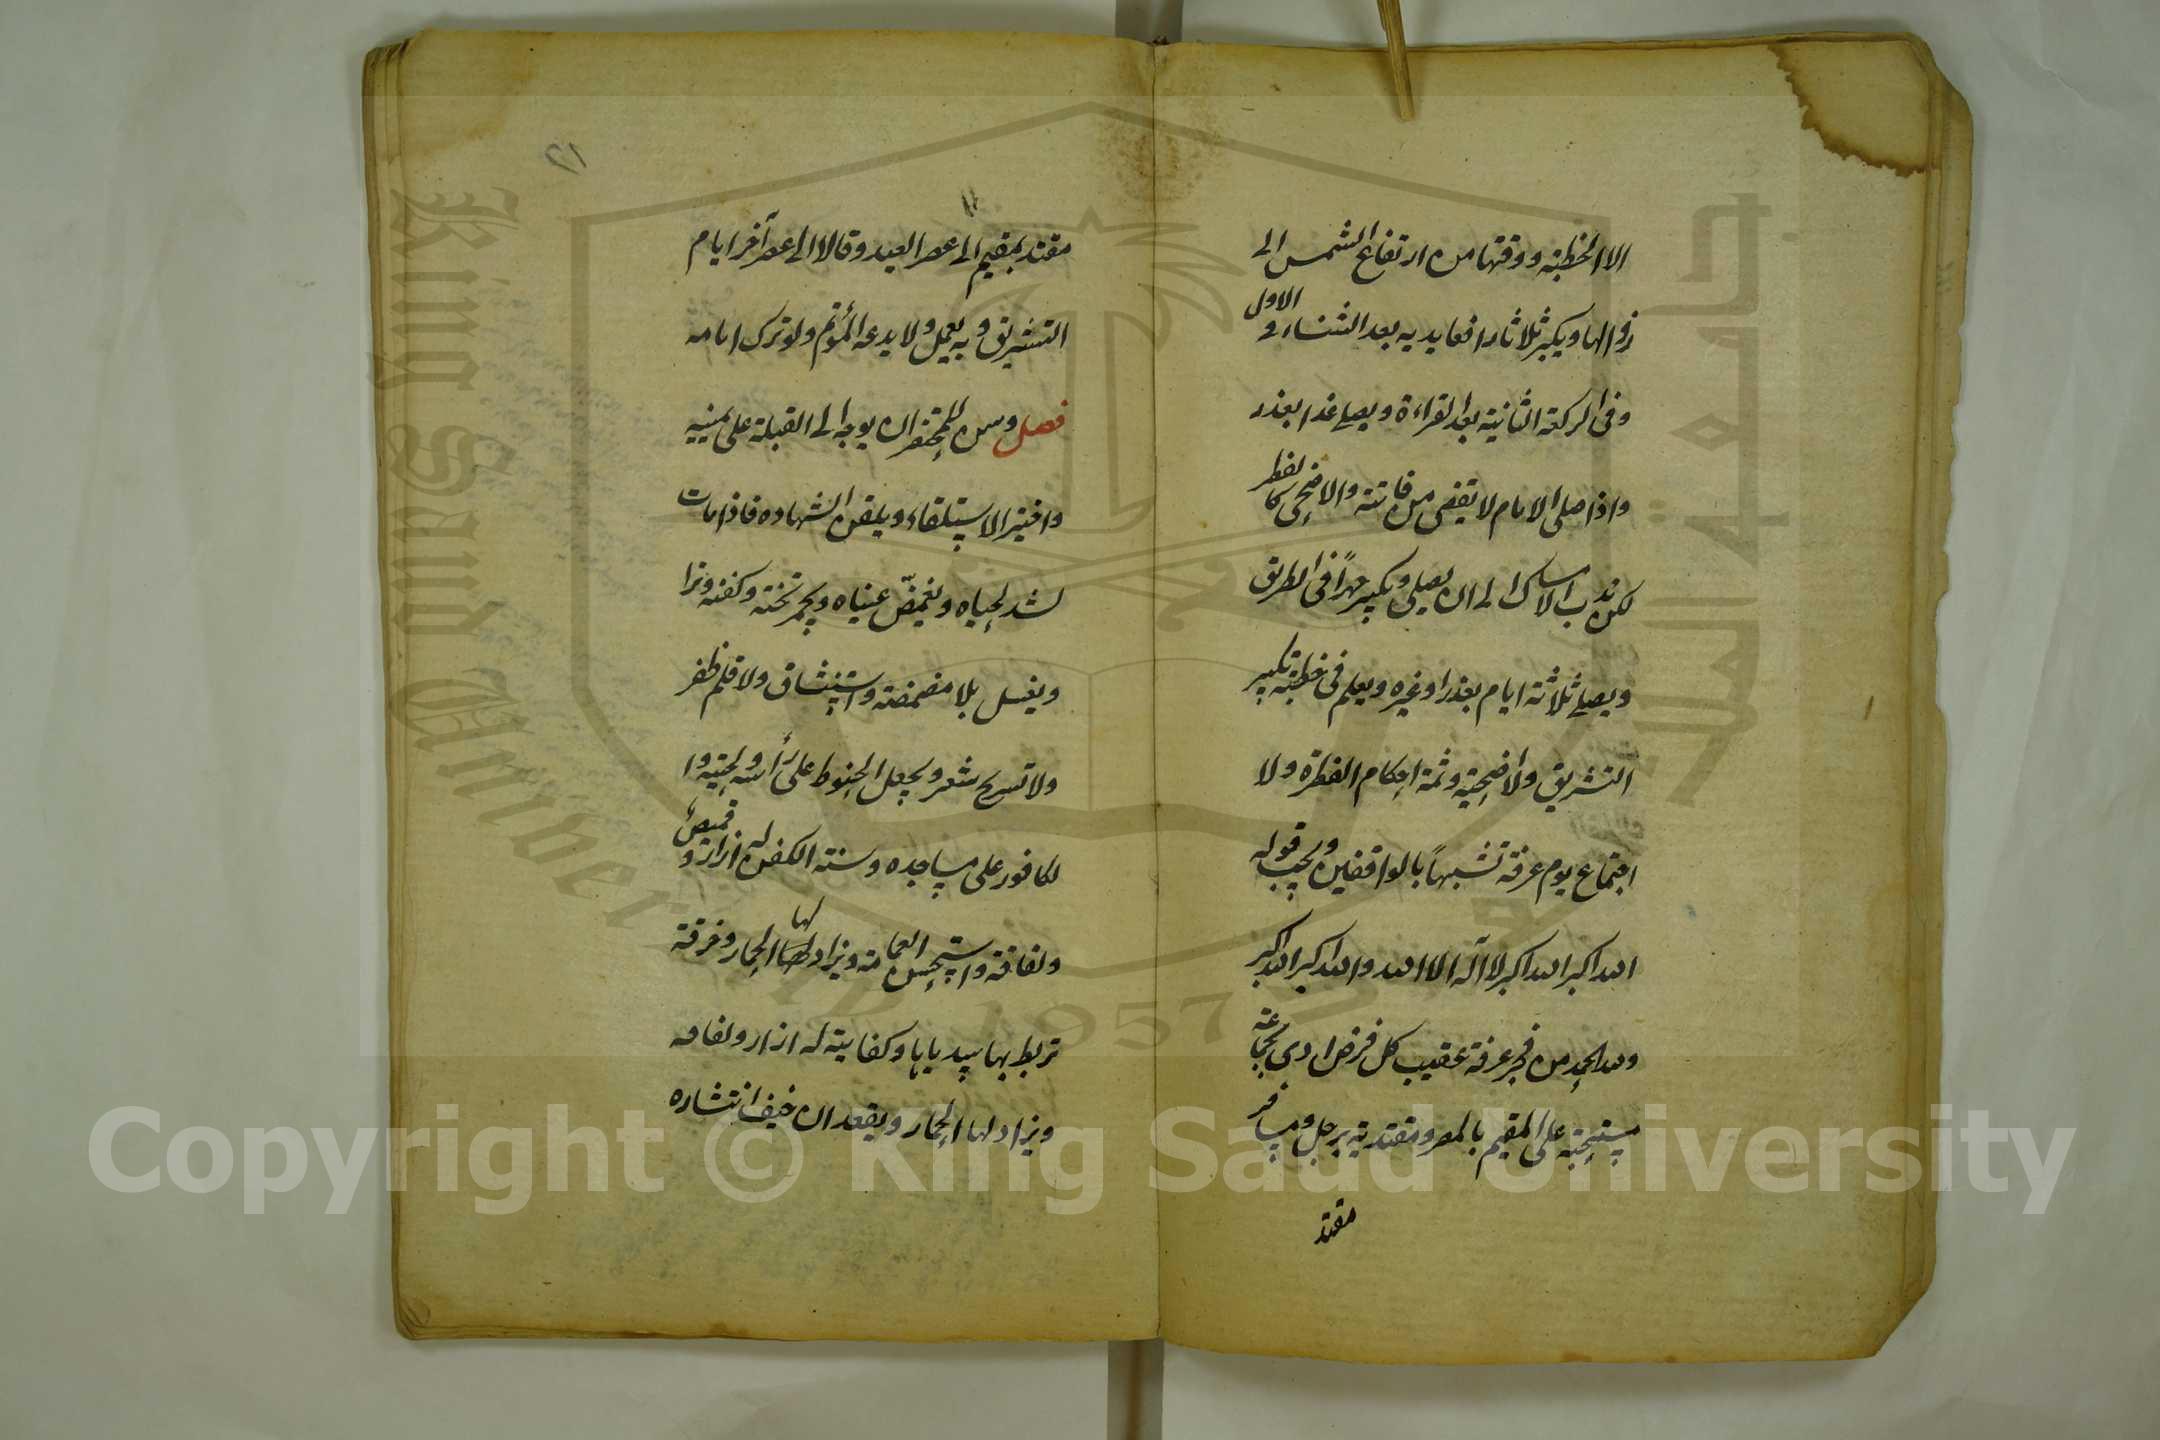 الا الخطبة ووقتها من ارتفاع الشمس الى
زوالها ويكبر ثلاثا رافعا يديه بعد الثناء و الاول
وفى الركعة الثانية بعد القراءة ويصلى غدا بعذر
واذا صلى الامام لا يقضى من فاتته والاضحى كالفطر
لكن ندب الامساك الى ان يصلى ويكبر جهراً فى الطريق
ويصلى ثلاثة ايام بعذر او غيره ويعلم فى خطبته تكبير
التشريق والاضحية وثمة احكام الفطرة ولا
اجتماع يوم عرفة تشبهاً بالواقفين ويجب قوله
الله اكبر الله اكبر لا اله الا الله والله اكبر الله اكبر
ولله الحمد من فجر عرفة عقيب كل فرض ادى بجماعة
مستحبة على المقيم بالمصر ومقتدية برجل ومسافر
مقتد
٢١
١١
مقتد بمقيم الى عصر العيد وقالا الى عصر آخر ايام
التشريق وبه يعمل ولا يدعه المؤتم ولو ترك امامه
فصل وسن للمحتضر ان يوجه الى القبلة على يمينه
واختير الاستلقاء ويلقن الشهادة فاذا مات
لشد لحياه ويغمض عيناه ويجمر تخته وكفنه وترا
ويغسل بلا مضمضة واستنشاق ولا قلم ظفر
ولا تسريح شعر ويجعل الحنوط على رأسه ولحيته وا
لكافور على مساجده وسنة الكفن له ازار وقميص
ولفافة واستحسن العمامة ويزاد لها الخمار وخرقة
تربط بها يدياها وكفايته له ازار ولفافه
ويزاد لها الخمار ويعقد ان خيف انتشاره
King Saud University
1957
Copyright © King Saud University